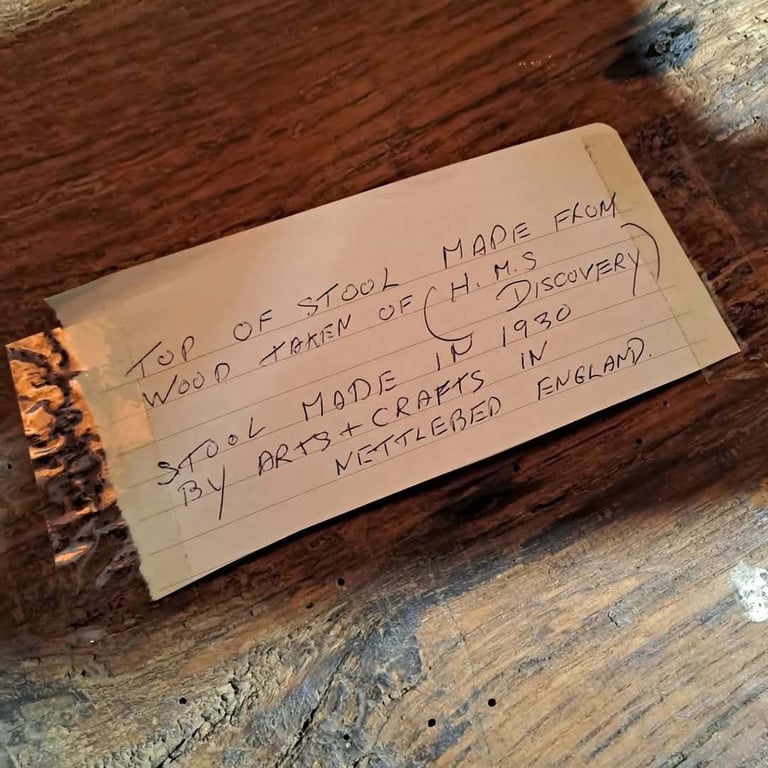 TOP OF STOOL MADE FROM
WOOD TAKEN OF (H.M.S
DISCOVERY)
STOOL MADE IN 1930
BY ARTS + CRAFTS IN
NETTLEBED ENGLAND.